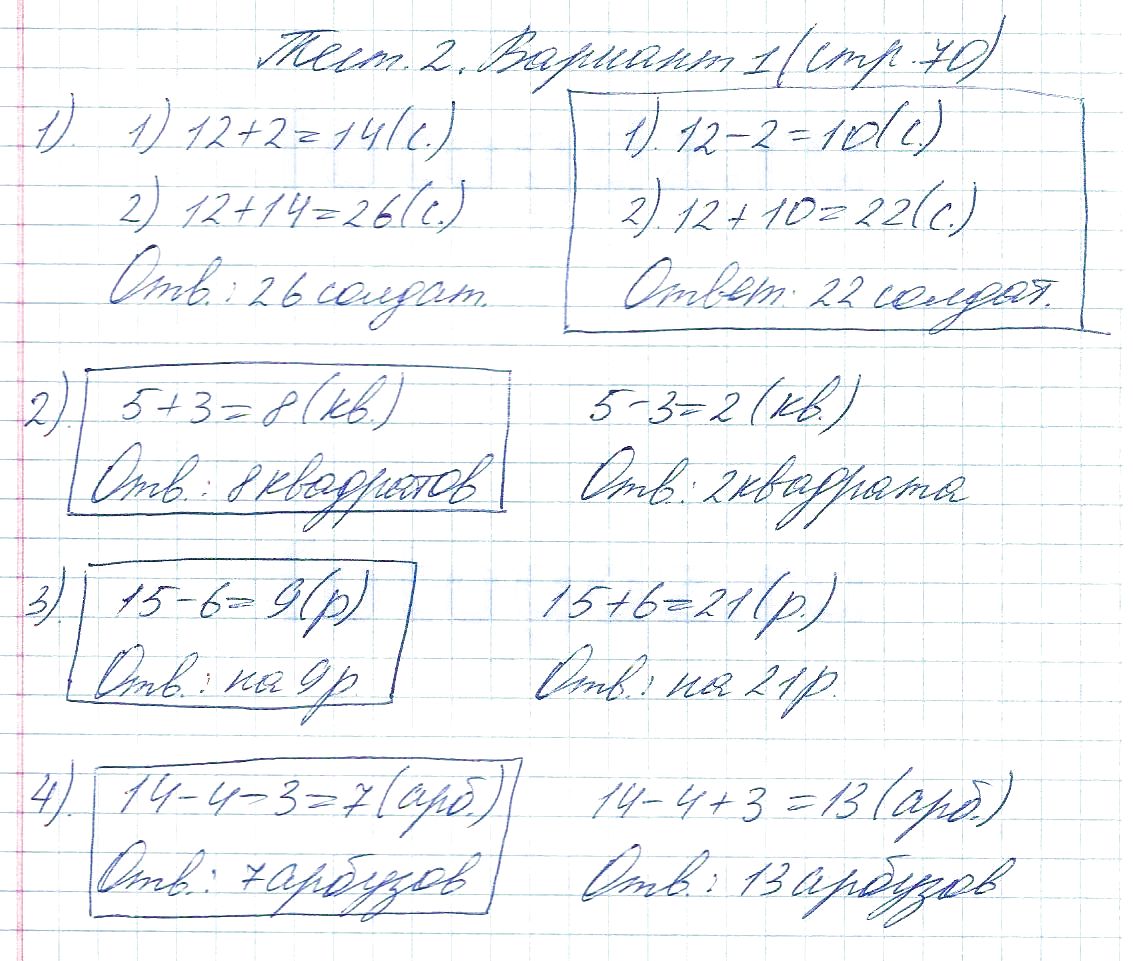 Тест. 2. Вариант 1 (стр. 70)
1). 1) 12+2=14(с.)
2) 12+14=26(с.)
Отв.: 26 солдат.
1). 12-2=10(с.)
2). 12+10=22(с.)
Ответ: 22 солдат.
2). 5+3=8(кв.)
Отв.: 8 квадратов
5-3=2(кв.)
Отв.: 2 квадрата
3) 15-6=9(р)
Отв.: на 9р.
15+6=21(р.)
Отв.: на 21р.
4). 14-4-3=7(арб.)
Отв.: 7 арбузов
14-4+3=13(арб.)
Отв.: 13 арбузов